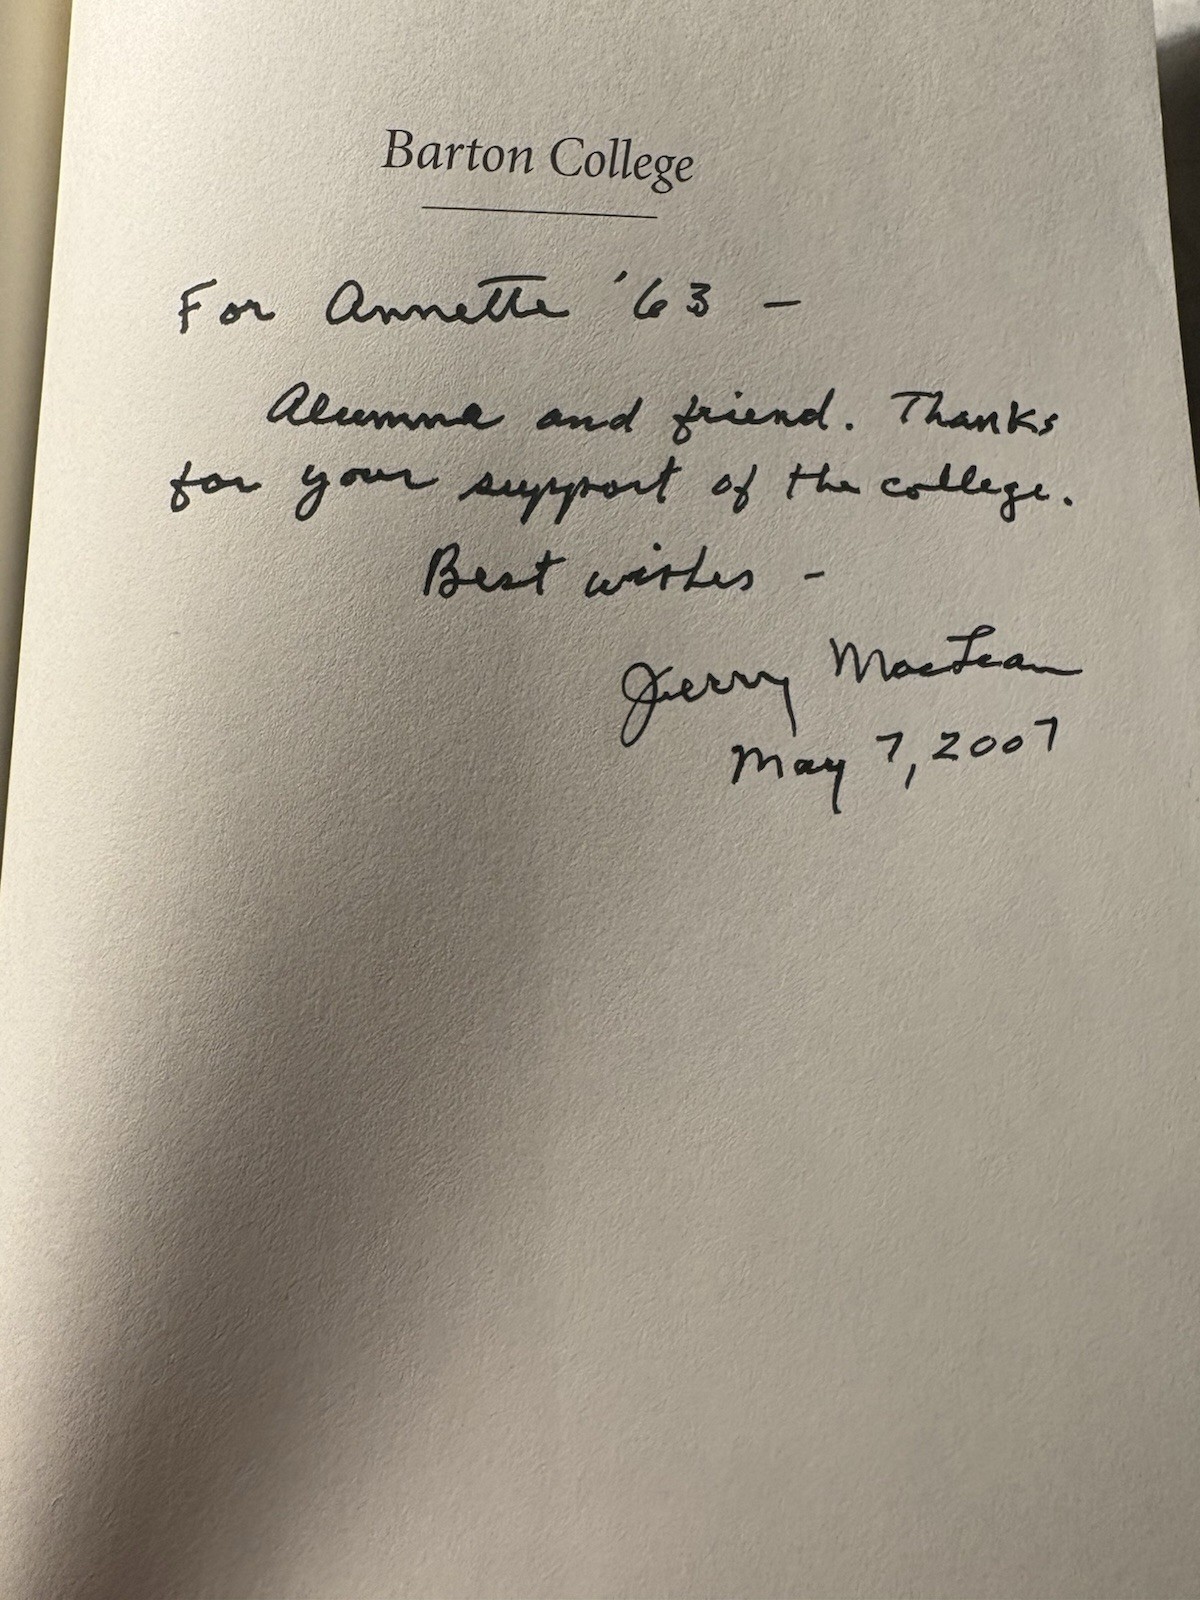 Barton College
For Annette '63 –
Alumna and friend. Thanks
for your support of the college.
Best wishes –
Jerry MacLean
May 7, 2007